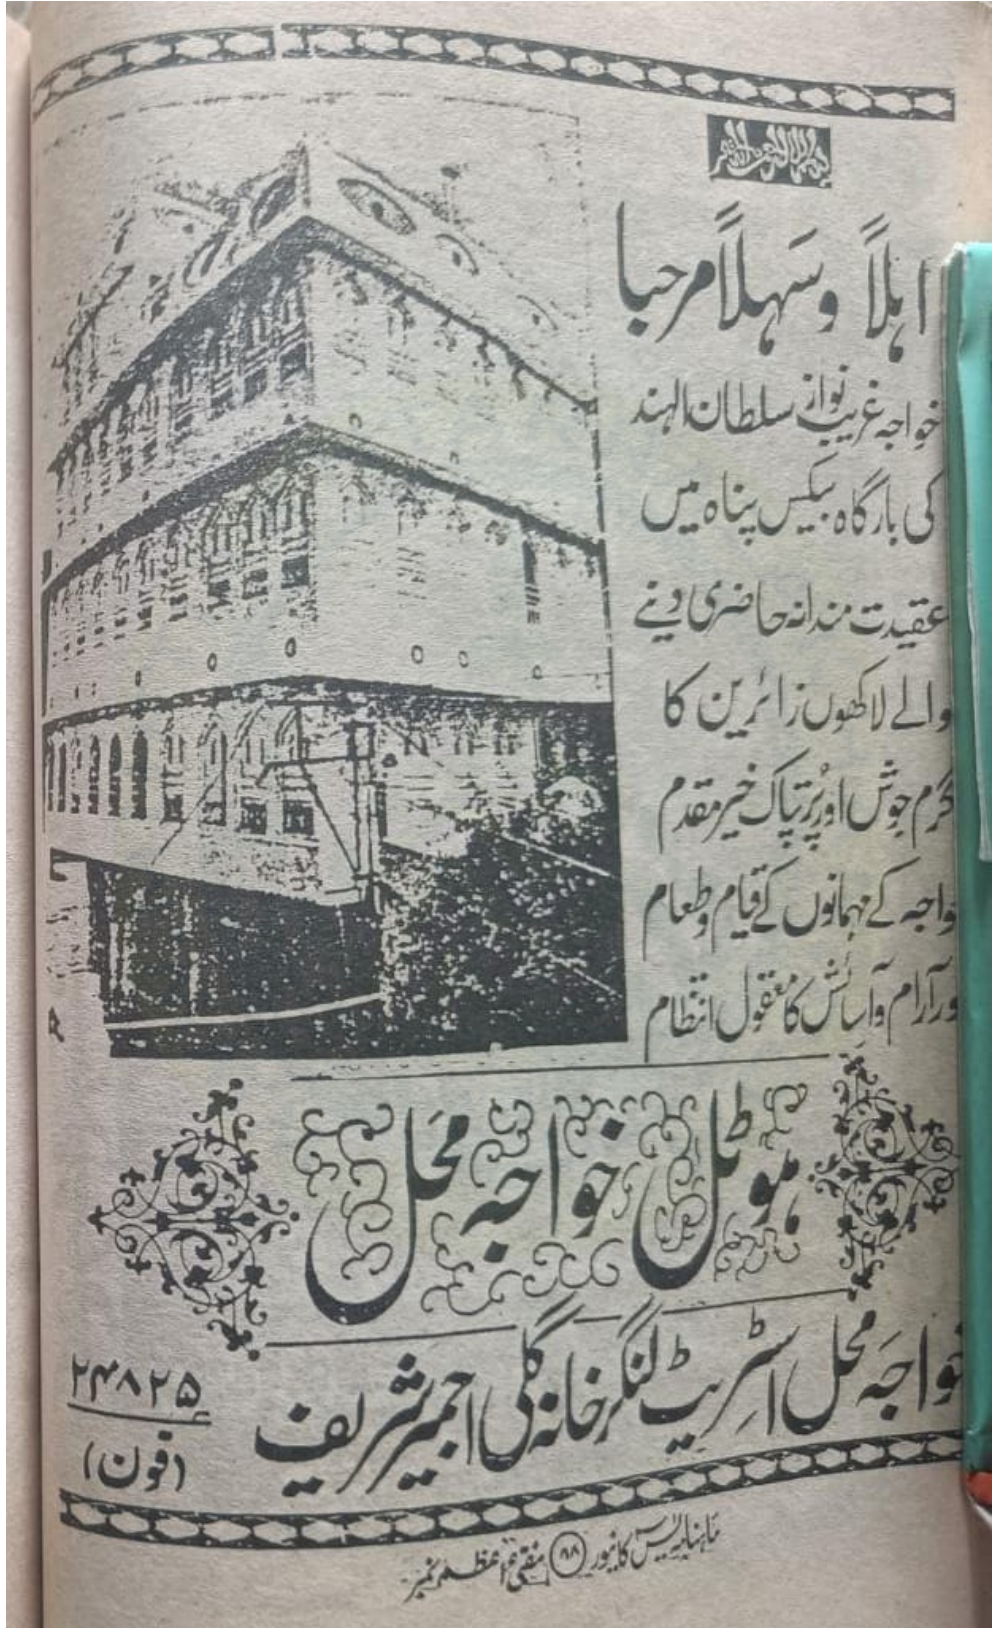 بسم اللہ الرحمن الرحیم
اہلاً وسَہلاً مرحبا
خواجہ غریب نواز سلطان الہند
کی بارگاہ بیکس پناہ میں
عقیدت مندانہ حاضری دینے
والے لاکھوں زائرین کا
گرم جوش اور پُرتپاک خیر مقدم
خواجہ کے مہمانوں کے قیام و طعام
اور آرام و آسائش کا معقول انتظام
ہوٹل خواجہ محَل
خواجَہ محل اسٹریٹ لنگر خانہ گلی اجمیر شریف
۲۴۸۲۵
(فون)
ماہنامہ کانپور ۹۸ مفتی اعظم نمبر